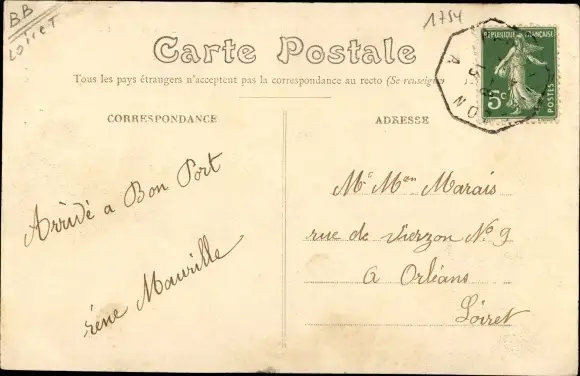 BB
Loiret
1784
Carte Postale
RÉPUBLIQUE FRANÇAISE
5c
POSTES
Tous les pays étrangers n'acceptent pas la correspondance au recto (Se renseigner
CORRESPONDANCE
ADRESSE
Arrivé a Bon Port
irène Maurille
Mr Men Marais
rue de Vierzon No 9
a Orléans
Loiret